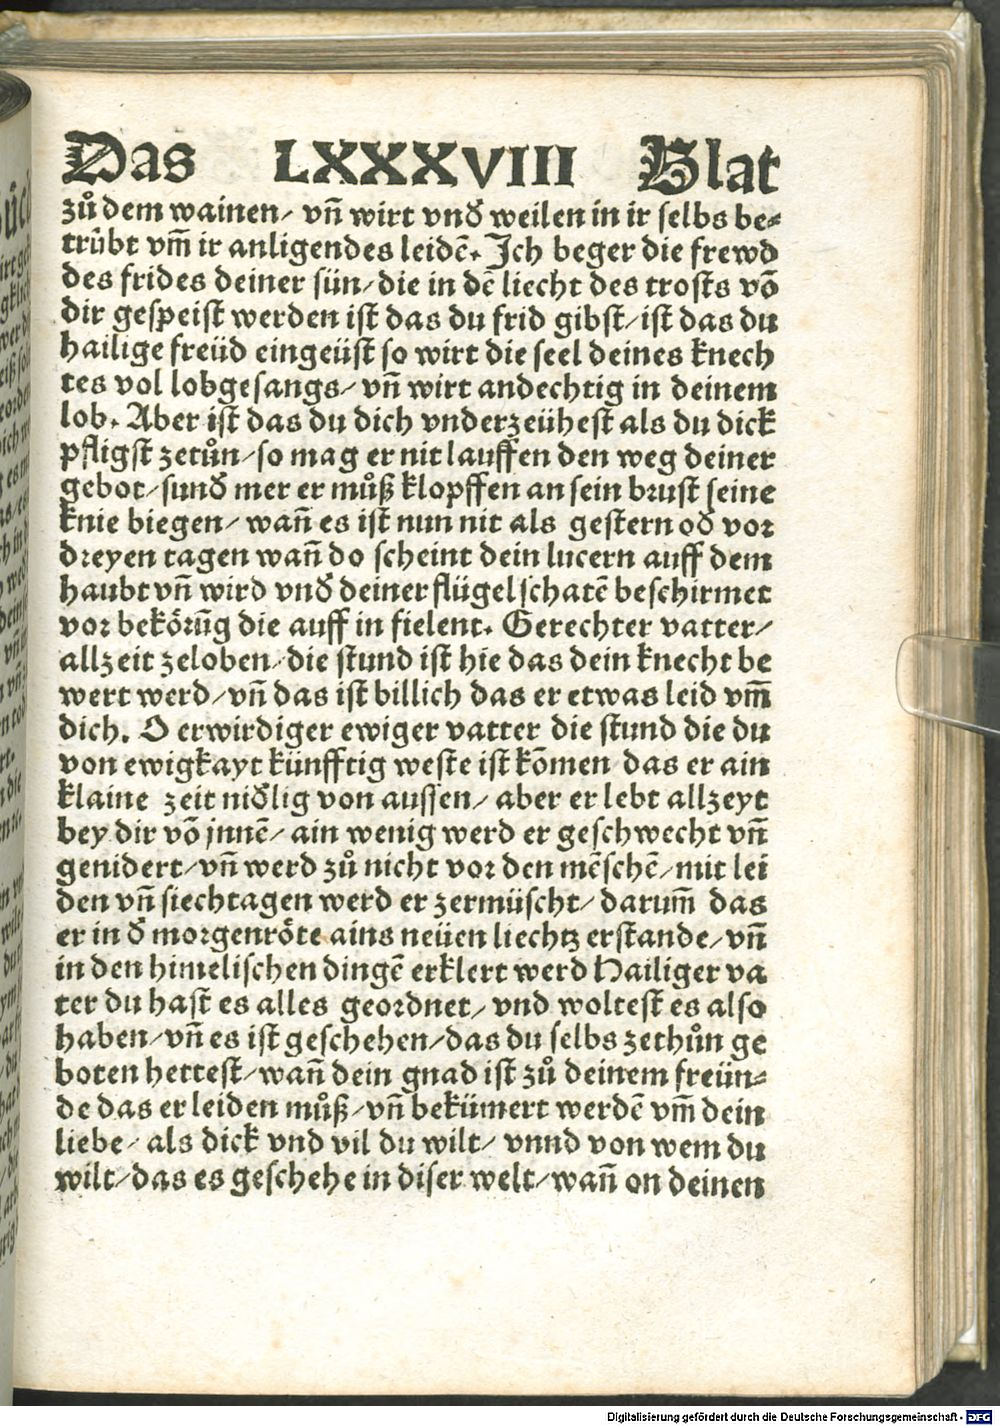 Das LXXXVIII Blat
zů dem wainen/ vn̄ wirt vnd̕ weilen in ir selbs be⸗
trůbt vm̄ ir anligendes leidē. Ich beger die frewd
des frides deiner sün/ die in dē liecht des trosts vō
dir gespeist werden ist das du frid gibst/ ist das du
hailige freüd eingeüst so wirt die seel deines knech
tes vol lobgesangs/ vn̄ wirt andechtig in deinem
lob. Aber ist das du dich vnderzeühest als du dick
pfligst zetůn/ so mag er nit lauffen den weg deiner
gebot/ sund̕ mer er můß klopffen an sein brust seine
knie biegen/ wan̄ es ist nun nit als gestern od̕ vor
dreyen tagen wan̄ do scheint dein lucern auff dem
haubt vn̄ wird vnd̕ deiner flügel schatē beschirmet
vor bekörūg die auff in fielent. Gerechter vatter/
allzeit zeloben/ die stund ist hie das dein knecht be
wert werd/ vn̄ das ist billich das er etwas leid vm̄
dich. O erwirdiger ewiger vatter die stund die du
von ewigkayt künfftig weste ist kōmen das er ain
klaine zeit nid̕lig von aussen/ aber er lebt allzeyt
bey dir vō jnnē/ ain wenig werd er geschwecht vn̄
genidert/ vn̄ werd zů nicht vor den mēschē/ mit lei
den vn̄ siechtagen werd er zermüscht/ darum̄ das
er in d̕ morgenröte ains neüen liechtz erstande/ vn̄
in den himelischen dingē erklert werd Hailiger va
ter du hast es alles geordnet/ vnd woltest es also
haben/ vn̄ es ist geschehen/ das du selbs zethůn ge
boten hettest/ wan̄ dein gnad ist zů deinem freün⸗
de das er leiden můß/ vn̄ bekümert werdē vm̄ dein
liebe/ als dick vnd vil du wilt/ vnnd von wem du
wilt/ das es geschehe in diser welt/ wan̄ on deinen
Digitalisierung gefördert durch die Deutsche Forschungsgemeinschaft - DFG